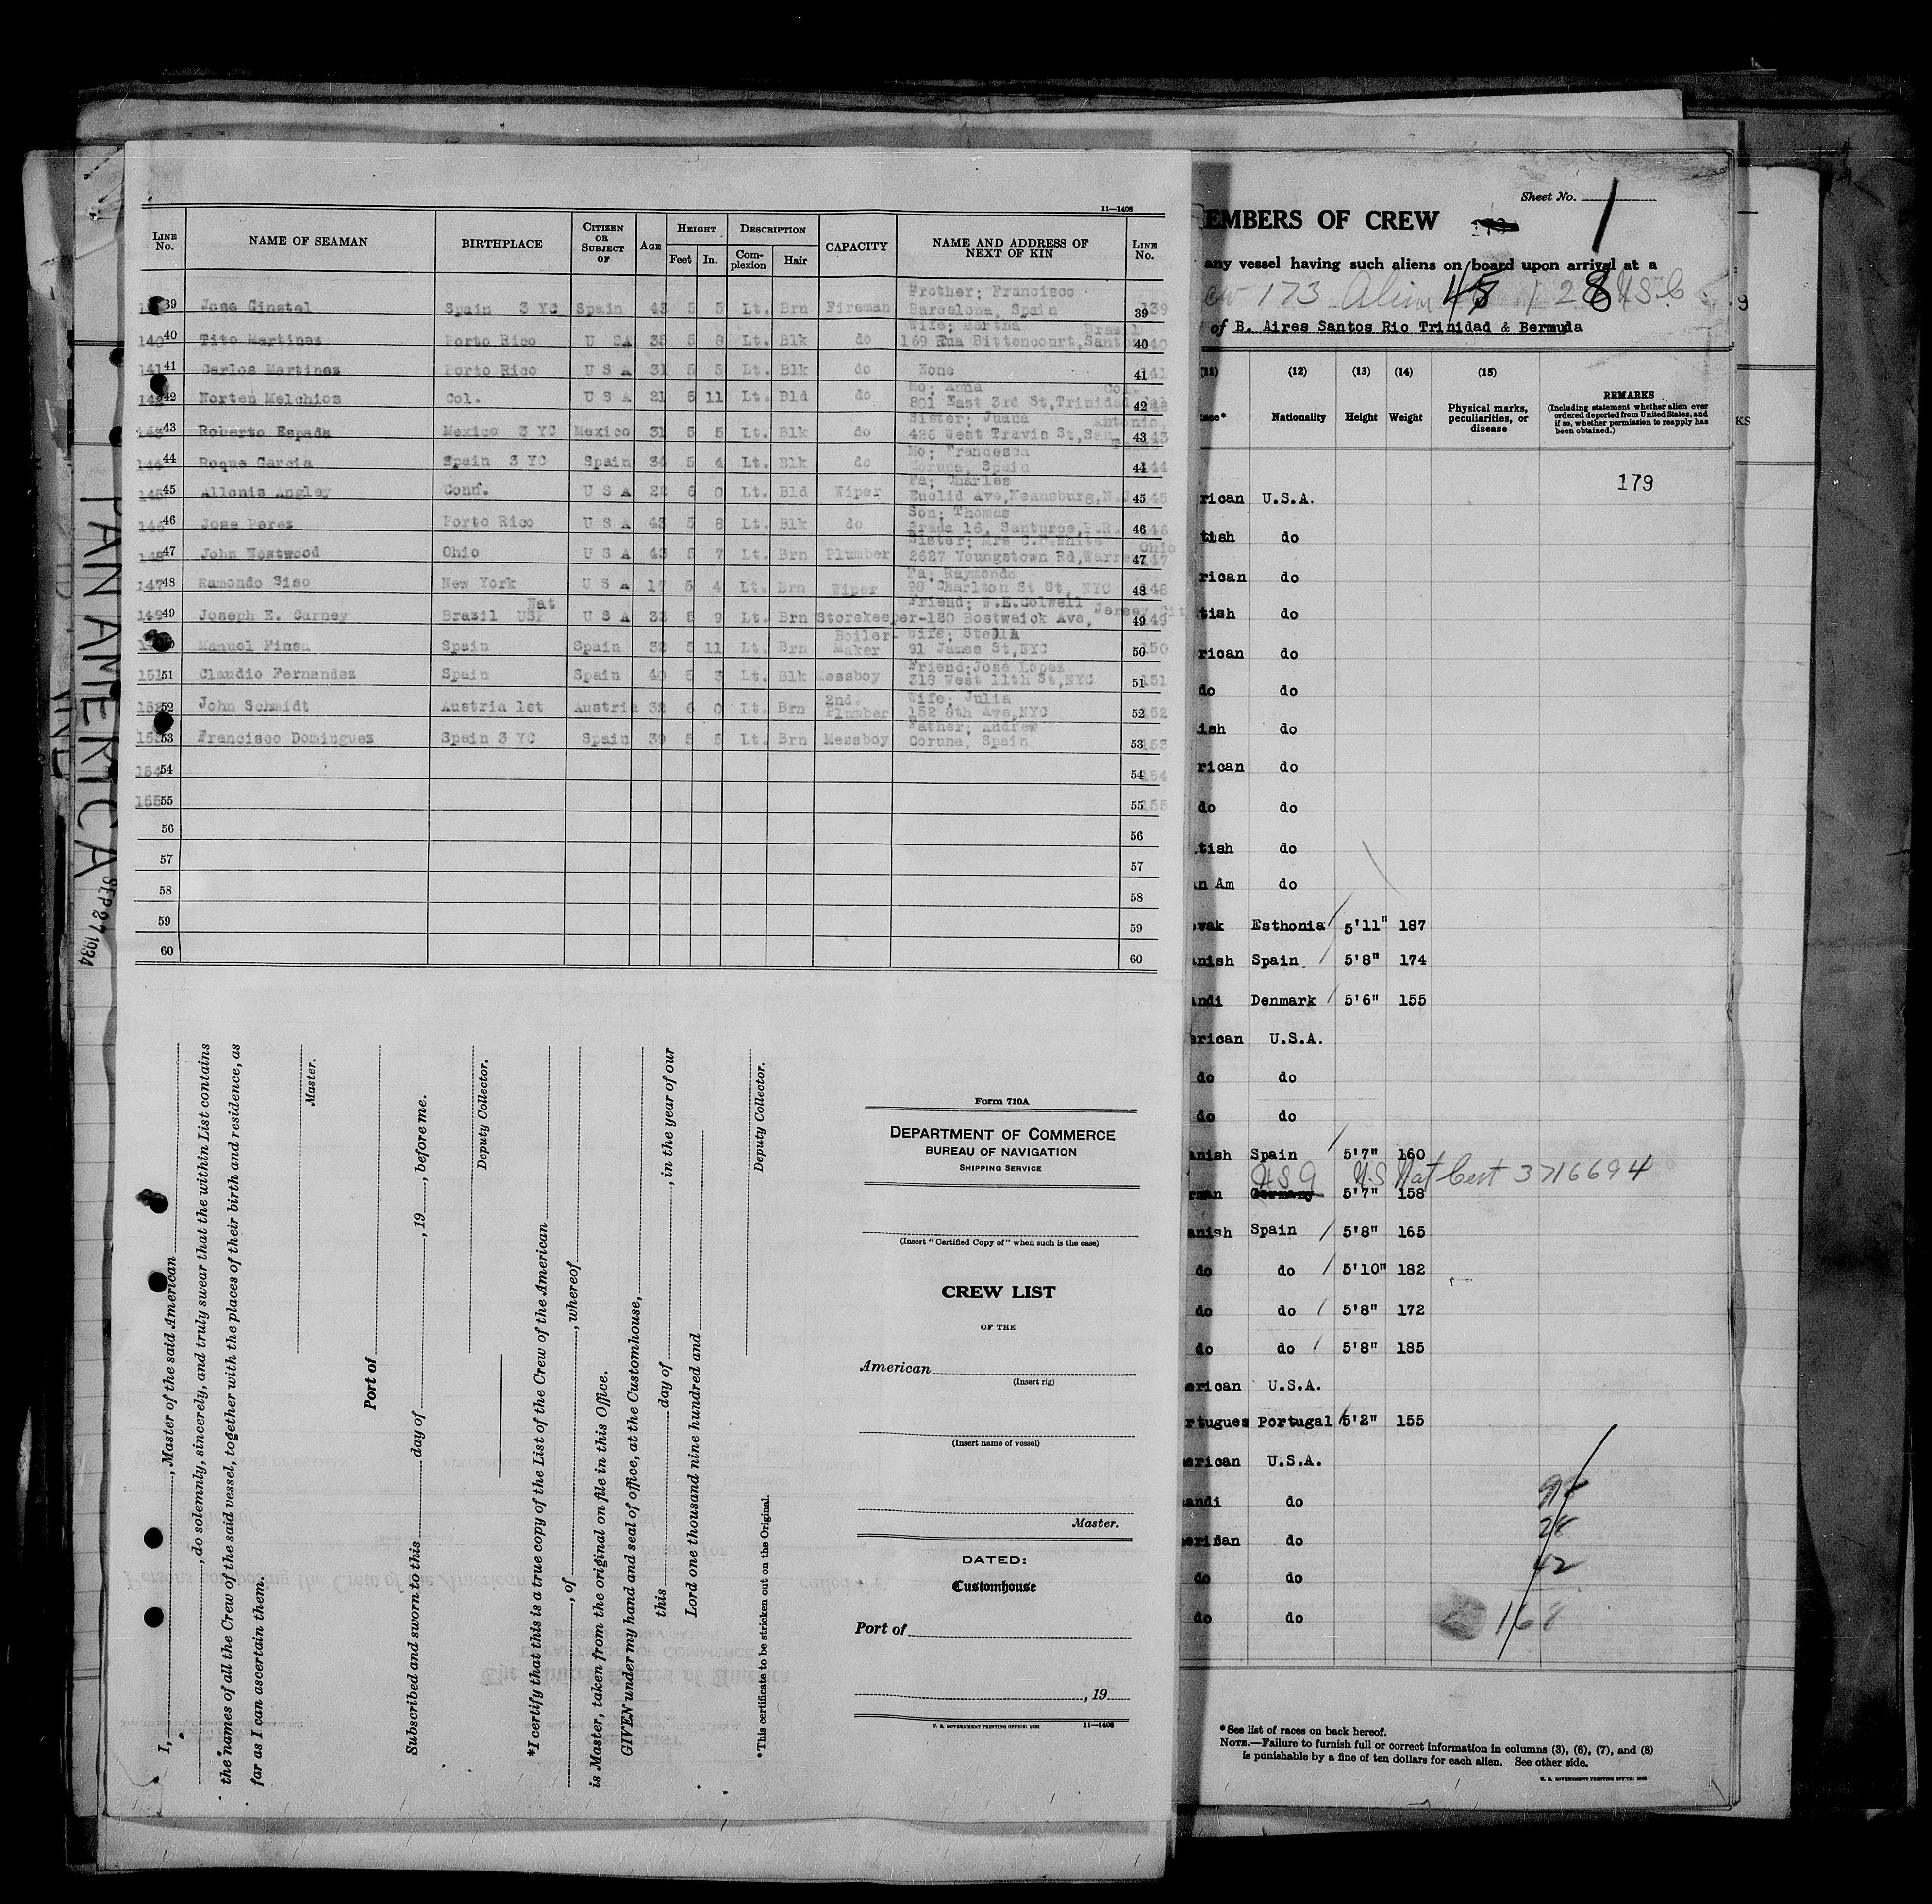 11—1408
LINE No. NAME OF SEAMAN BIRTHPLACE CITIZEN OR SUBJECT OF AGE HEIGHT Feet In. DESCRIPTION Complexion Hair CAPACITY NAME AND ADDRESS OF NEXT OF KIN LINE No.
39 Jose Ginstel Spain 3 YC Spain 43 5 5 Lt. Brn Fireman Brother; Francisco Barcelona, Spain 39 139
140 40 Tito Martinez Porto Rico U SA 35 5 8 Lt. Blk do Wife; Martha 169 Rua Bittencourt, Santos Brazil 40
141 41 Carlos Martinez Porto Rico U S A 31 5 5 Lt. Blk do None 41 141
42 Norten Melchios Col. U S A 21 5 11 Lt. Bld do Mo; Anna 801 East 3rd St, Trinidad Col. 42
143 43 Roberto Espada Mexico 3 YC Mexico 31 5 5 Lt. Blk do Sister; Juana 426 West Travis St, San Antonio, Texas 43
144 44 Roque Garcia Spain 3 YC Spain 34 5 4 Lt. Blk do Mo; Francesca Coruna, Spain 44
145 45 Allonis Angley Conn. U S A 22 6 0 Lt. Bld Wiper Fa; Charles Euclid Ave, Keansburg, N.J 45
146 46 Jose Perez Porto Rico U S A 43 5 8 Lt. Blk do Son; Thomas Prada 16, Santurce, P.R. 46
148 47 John Westwood Ohio U S A 43 5 7 Lt. Brn Plumber Sister; Mrs C.C.White 2627 Youngstown Rd, Warren Ohio 47 147
147 48 Ramondo Siso New York U S A 17 5 4 Lt. Brn Wiper Fa; Raymondo 98 Charlton St St, NYC 48 148
149 49 Joseph E. Carney Brazil USP Nat U S A 32 5 9 Lt. Brn Storekeeper-120 Bostwick Ave, Friend; W.E.Colwell Jersey Cit 49 149
Manuel Finsa Spain Spain 32 5 11 Lt. Brn Boiler Maker Wife; Stella 91 James St, NYC 50 150
151 51 Claudio Fernandez Spain Spain 40 5 3 Lt. Blk Messboy Friend; Jose Lopez 318 West 11th St, NYC 51 151
152 52 John Schmidt Austria 1st Austria 32 6 0 Lt. Brn 2nd. Plumber Wife; Julia 152 8th Ave, NYC 52 152
53 Francisco Dominguez Spain 3 YC Spain 39 5 5 Lt. Brn Messboy Father; Andrew Coruna, Spain 53 153
154 54 54 154
155 55 55 155
56 56
57 57
58 58
59 59
60 60
PAN AMERICA
SEP 27 1934
I, , Master of the said American
, do solemnly, sincerely, and truly swear that the within List contains
the names of all the Crew of the said vessel, together with the places of their birth and residence, as
far as I can ascertain them.
Master.
Port of
Subscribed and sworn to this day of , 19 , before me.
Deputy Collector.
*I certify that this is a true copy of the List of the Crew of the American
, of , whereof
is Master, taken from the original on file in this Office.
GIVEN under my hand and seal of office, at the Customhouse,
this day of , in the year of our
Lord one thousand nine hundred and
Deputy Collector.
*This certificate to be stricken out on the Original.
Form 710A
DEPARTMENT OF COMMERCE
BUREAU OF NAVIGATION
SHIPPING SERVICE
(Insert "Certified Copy of" when such is the case)
CREW LIST
OF THE
American
(Insert rig)
(Insert name of vessel)
Master.
DATED:
Customhouse
Port of
, 19
U. S. GOVERNMENT PRINTING OFFICE: 1933 11—1408
Sheet No. 1
EMBERS OF CREW
any vessel having such aliens on board upon arrival at a
173 Alien 45 128 USC
of B. Aires Santos Rio Trinidad & Bermuda
(11) (12) (13) (14) (15)
Nationality Height Weight Physical marks, peculiarities, or disease REMARKS
(Including statement whether alien ever ordered deported from United States, and if so, whether permission to reapply has been obtained.)
179
rican U.S.A.
tish do
rican do
tish do
rican do
do do
ish do
rican do
do do
tish do
n Am do
vak Esthonia 5'11" 187
nish Spain 5'8" 174
andi Denmark 5'6" 155
erican U.S.A.
do do
do do
anish Spain 5'7" 160
USA US Nat Cert 3716694
rman Germany 5'7" 158
anish Spain 5'8" 165
do do 5'10" 182
do do 5'8" 172
do do 5'8" 185
erican U.S.A.
rtugues Portugal 5'2" 155
erican U.S.A.
andi do
merican do
42
do do
do do
*See list of races on back hereof.
NOTE.—Failure to furnish full or correct information in columns (3), (6), (7), and (8)
is punishable by a fine of ten dollars for each alien. See other side.
U. S. GOVERNMENT PRINTING OFFICE: 1933
9
KS